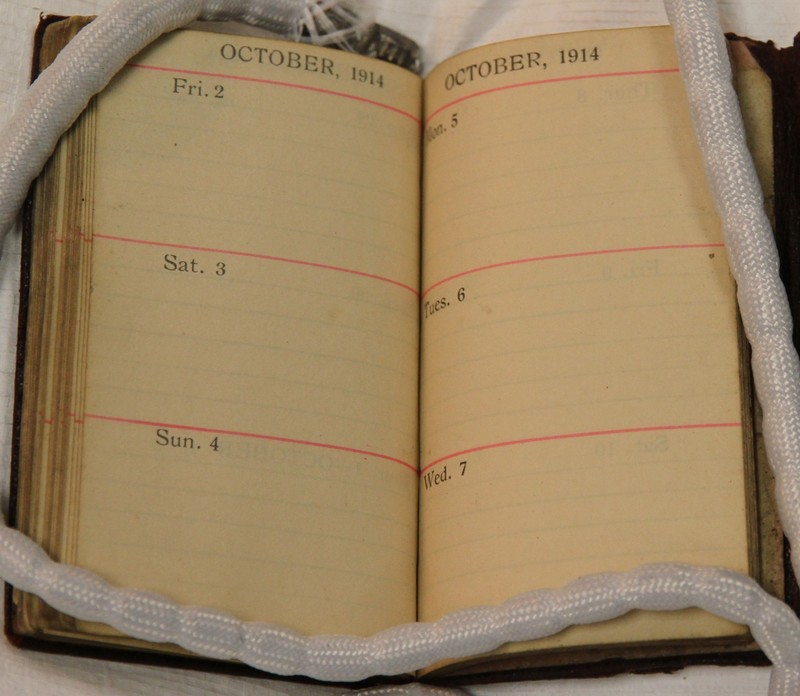 OCTOBER, 1914
Fri. 2
Sat. 3
Sun. 4
OCTOBER, 1914
Mon. 5
Tues. 6
Wed. 7